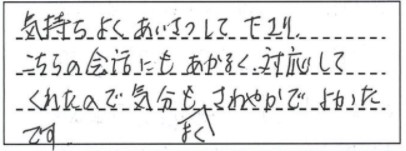 気持ちよくあいさつして下さり、
こちらの会話にもあかるく、対応して
くれたので気分も、さわやかでよかった
です。 すく